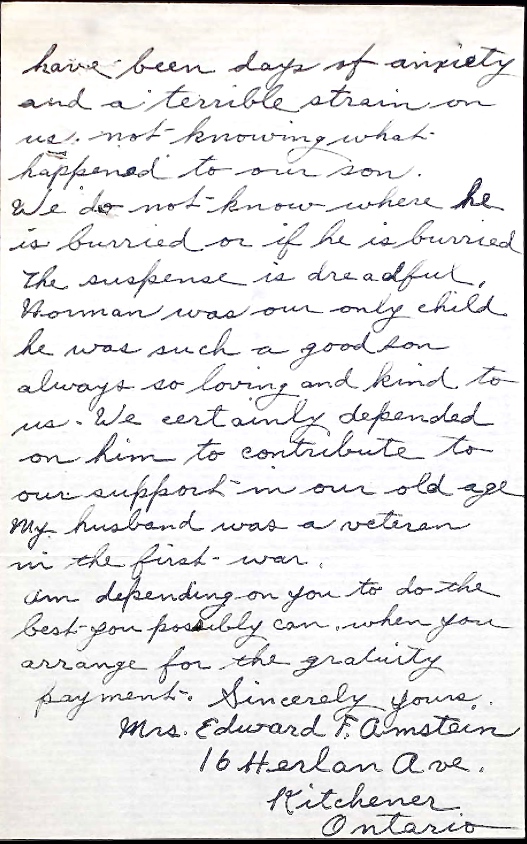 have been days of anxiety
and a terrible strain on
us. not knowing what
happened to our son.
We do not know where he
is burried or if he is burried
The suspense is dreadful.
Norman was our only child
he was such a good son
always so loving and kind to
us. We certainly depended
on him to contribute to
our support in our old age
My husband was a veteran
in the first war.
am depending on you to do the
best you possibly can. when you
arrange for the gratuity
payment. Sincerely yours.
Mrs. Edward F. Amstein
16 Herlan Ave.
Kitchener
Ontario